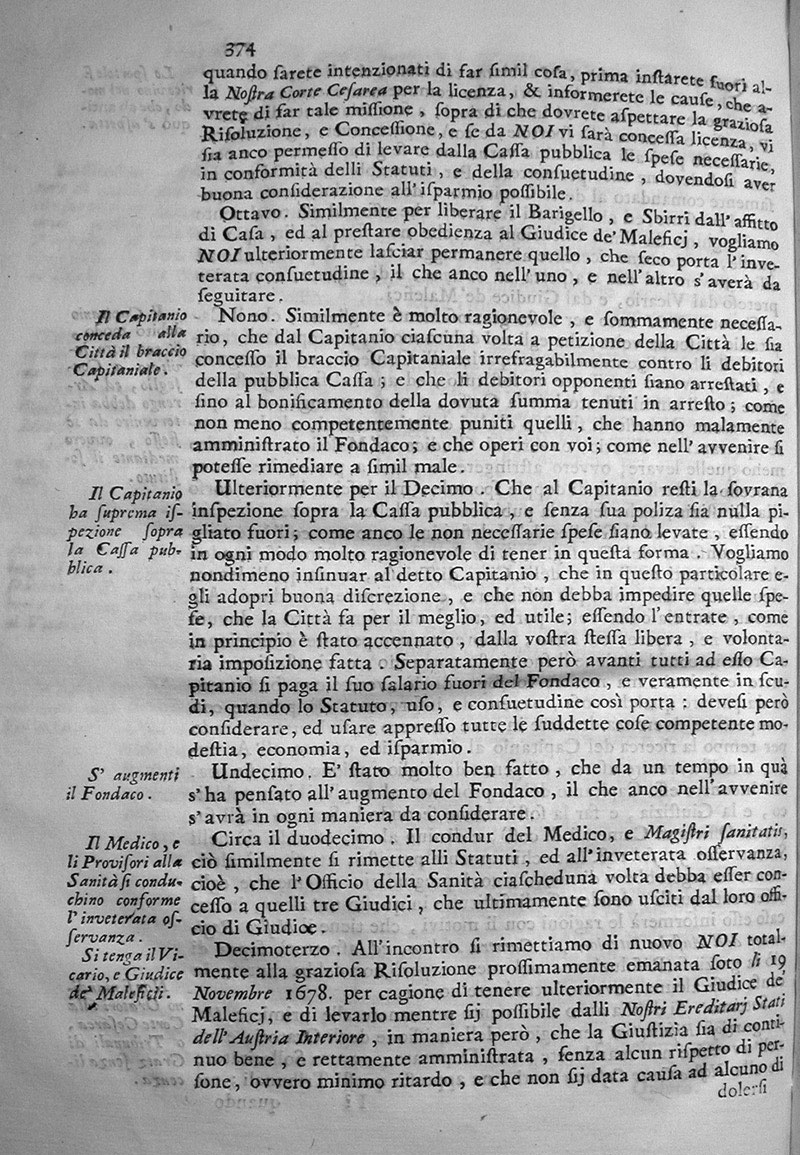 374
quando ſarete intenzionati di far ſimil coſa, prima inſtarete fuori al-
la Noſtra Corte Ceſarea per la licenza, & informerete le cauſe, che a-
vrete di far tale miſſione, ſopra di che dovrete aſpettare la grazioſa
Riſoluzione, e Conceſſione, e ſe da NOI vi ſarà conceſſa licenza, vi
ſia anco permeſſo di levare dalla Caſſa pubblica le ſpeſe neceſſarie,
in conformità delli Statuti, e della conſuetudine, dovendoſi aver
buona conſiderazione all'iſparmio poſſibile.
Ottavo. Similmente per liberare il Barigello, e Sbirri dall'affitto
di Caſa, ed al preſtare obedienza al Giudice de' Maleficj, vogliamo
NOI ulteriormente laſciar permanere quello, che ſeco porta l'inve-
terata conſuetudine, il che anco nell'uno, e nell'altro s'averà da
ſeguitare.
Il Capitanio
conceda alla
Città il braccio
Capitaniale.
Nono. Similmente è molto ragionevole, e ſommamente neceſſa-
rio, che dal Capitanio ciaſcuna volta a petizione della Città le ſia
conceſſo il braccio Capitaniale irrefragabilmente contro li debitori
della pubblica Caſſa; e che li debitori opponenti ſiano arreſtati, e
ſino al bonificamento della dovuta ſumma tenuti in arreſto; come
non meno competentemente puniti quelli, che hanno malamente
amminiſtrato il Fondaco; e che operi con voi; come nell'avvenire ſi
poteſſe rimediare a ſimil male.
Il Capitanio
ha ſuprema iſ-
pezione ſopra
la Caſſa pub-
blica.
Ulteriormente per il Decimo. Che al Capitanio reſti la ſovrana
inſpezione ſopra la Caſſa pubblica, e ſenza ſua poliza ſia nulla pi-
gliato fuori; come anco le non neceſſarie ſpeſe ſiano levate, eſſendo
in ogni modo molto ragionevole di tener in queſta forma. Vogliamo
nondimeno inſinuar al detto Capitanio, che in queſto particolare e-
gli adopri buona diſcrezione, e che non debba impedire quelle ſpe-
ſe, che la Città fa per il meglio, ed utile; eſſendo l'entrate, come
in principio è ſtato accennato, dalla voſtra ſteſſa libera, e volonta-
ria impoſizione fatta. Separatamente però avanti tutti ad eſſo Ca-
pitanio ſi paga il ſuo ſalario fuori del Fondaco, e veramente in ſcu-
di, quando lo Statuto, uſo, e conſuetudine così porta: deveſi però
conſiderare, ed uſare appreſſo tutte le ſuddette coſe competente mo-
deſtia, economia, ed iſparmio.
S' augmenti
il Fondaco.
Undecimo. E' ſtato molto ben fatto, che da un tempo in quà
s'ha penſato all'augmento del Fondaco, il che anco nell'avvenire
s'avrà in ogni maniera da conſiderare.
Il Medico, e
li Proviſori alla
Sanità ſi condu-
chino conforme
l'inveterata oſ-
ſervanza.
Circa il duodecimo. Il condur del Medico, e Magiſtri ſanitatis,
ciò ſimilmente ſi rimette alli Statuti, ed all'inveterata oſſervanza,
cioè, che l'Officio della Sanità ciaſcheduna volta debba eſſer con-
ceſſo a quelli tre Giudici, che ultimamente ſono uſciti dal loro offi-
cio di Giudice.
Si tenga il Vi-
cario, e Giudice
de' Maleficii.
Decimoterzo. All'incontro ſi rimettiamo di nuovo NOI total-
mente alla grazioſa Riſoluzione proſſimamente emanata ſoto li 19
Novembre 1678. per cagione di tenere ulteriormente il Giudice de'
Maleficj, e di levarlo mentre ſij poſſibile dalli Noſtri Ereditarj Stati
dell'Auſtria Interiore, in maniera però, che la Giuſtizia ſia di conti-
nuo bene, e rettamente amminiſtrata, ſenza alcun riſpetto di per-
ſone, ovvero minimo ritardo, e che non ſij data cauſa ad alcuno di
dolerſi